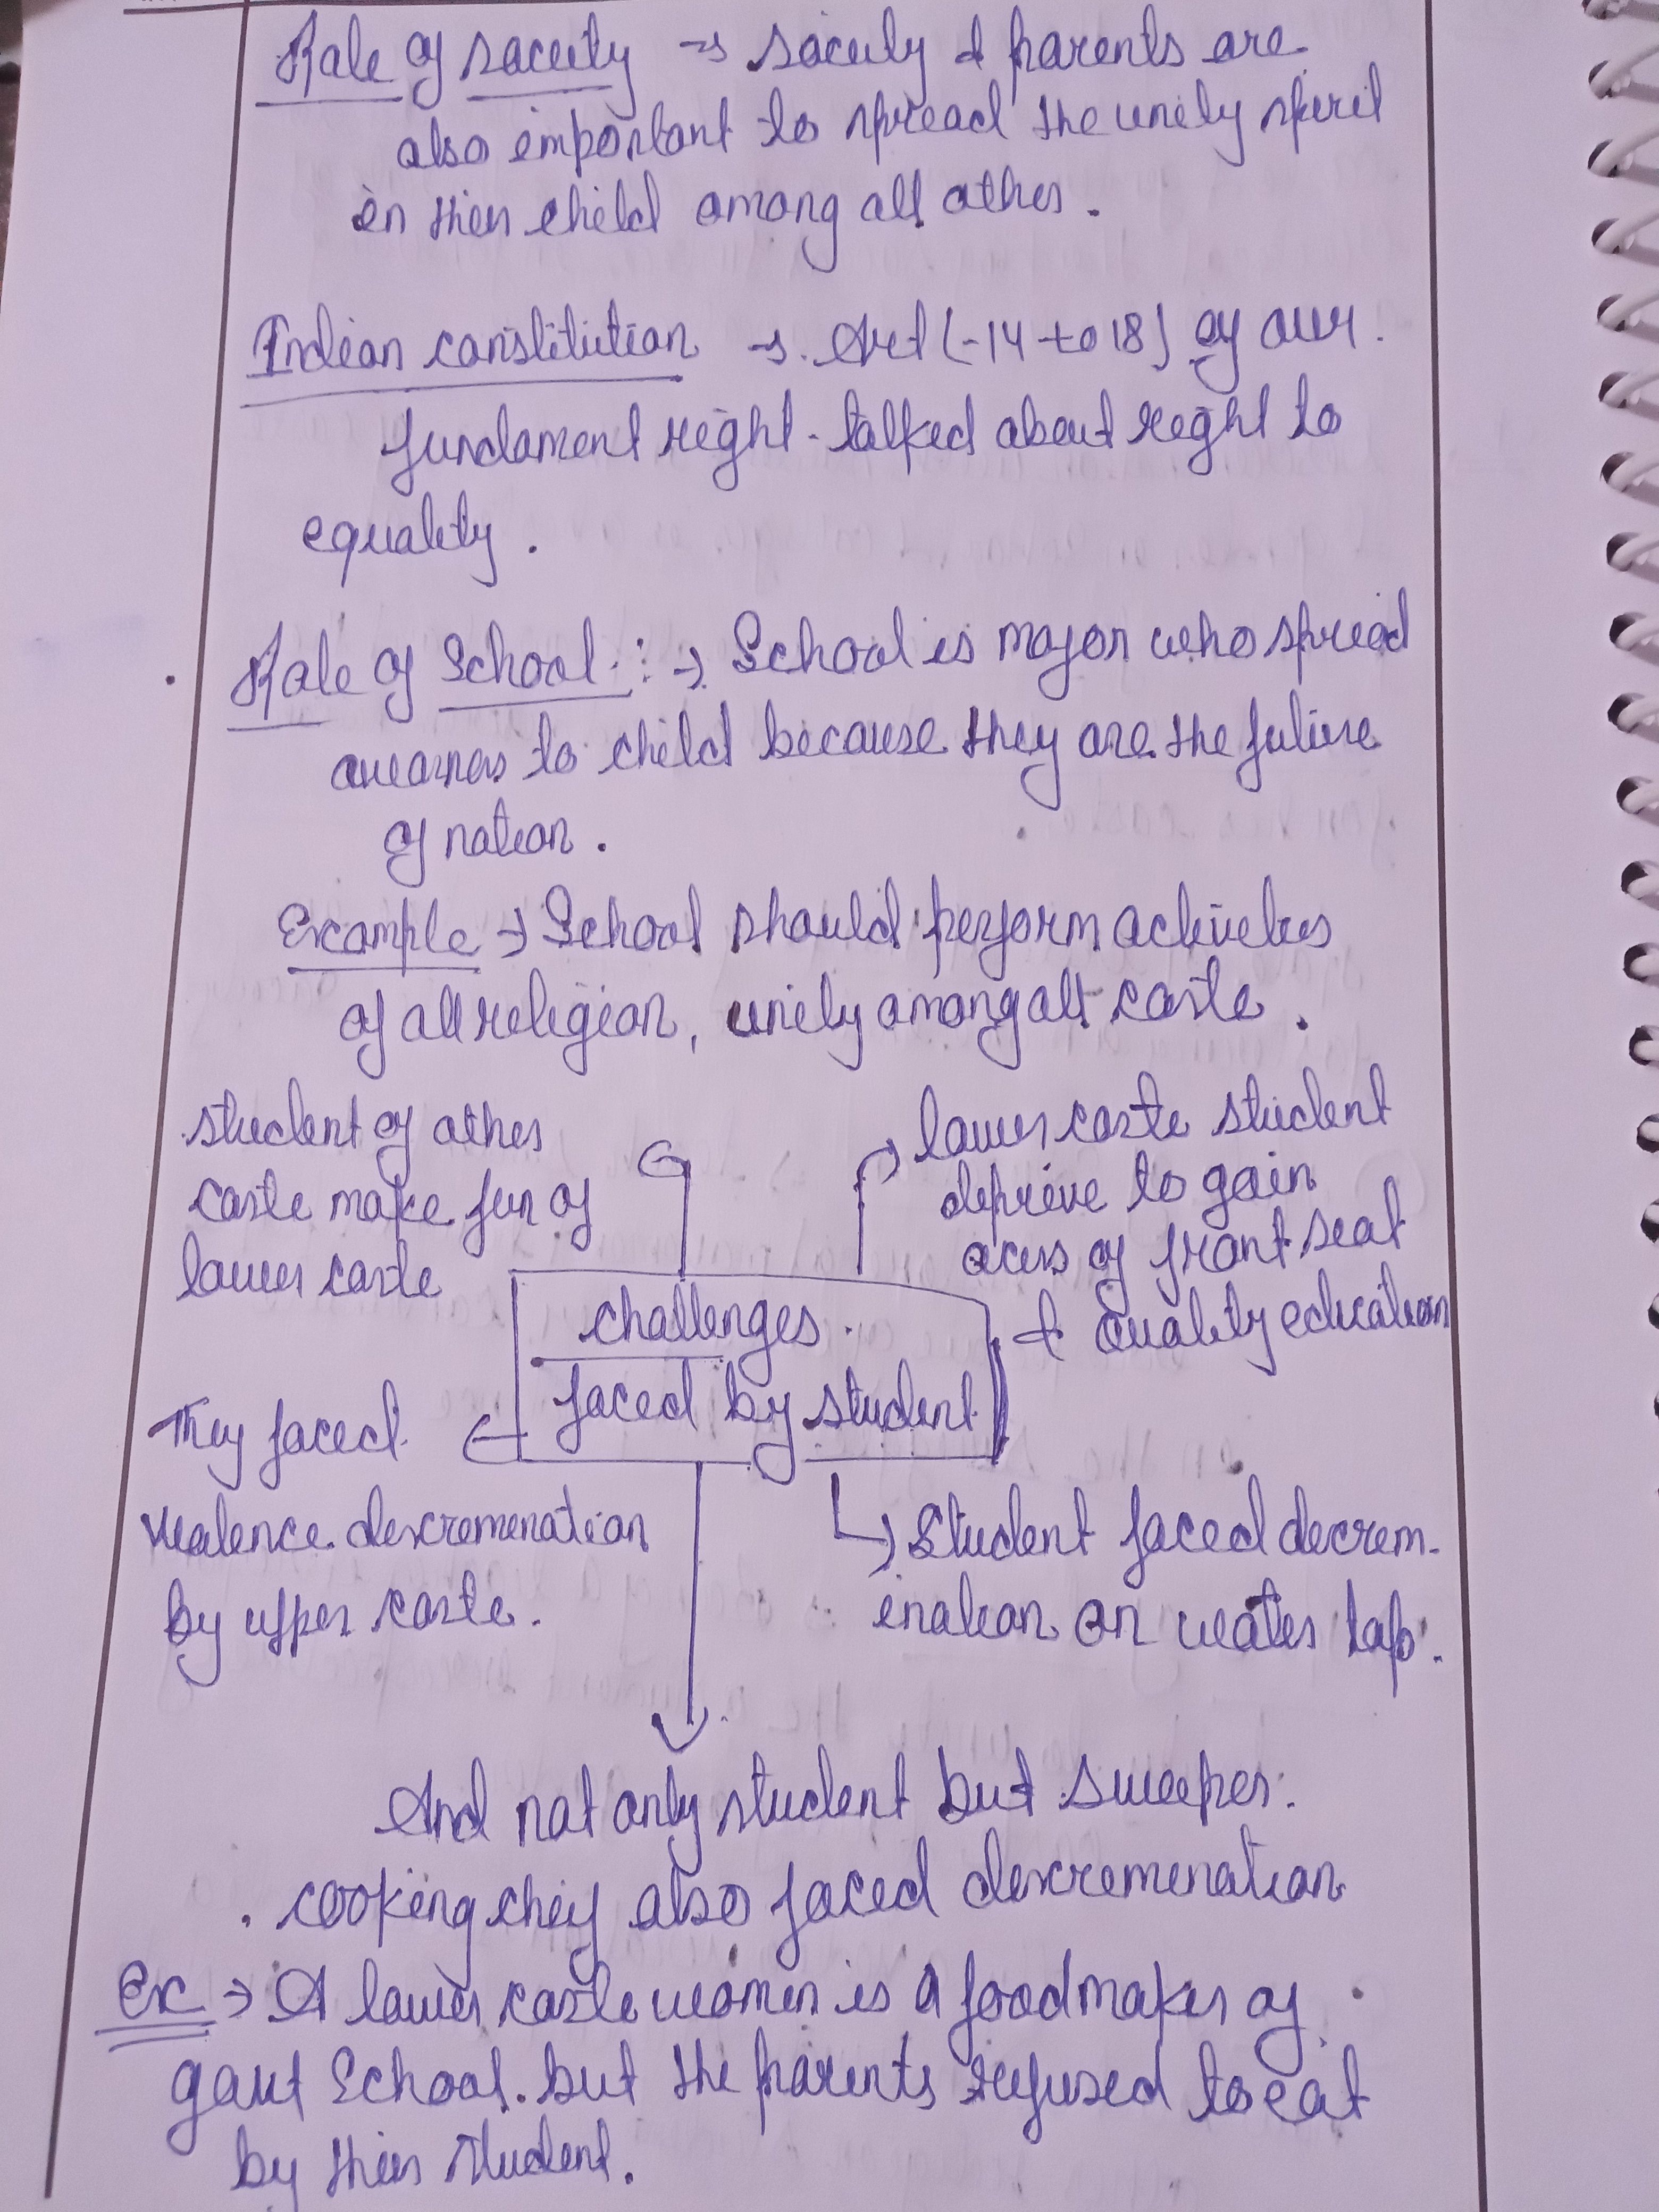 Role of society → society & parents are
also important to spread the unity spirit
in their child among all other.
Indian constitution → Art (-14 to 18) of our
fundament right - talked about right to
equality.
Role of School : → School is major who spread
awarness to child because they are the future
of nation.
Example → School should perform activities
of all religion, unity among all caste.
student of other
caste make fun of
lower caste
lower caste student
deprive to gain
acess of front seat
& quality education
challenges
faced by student
They faced
violence discremenation
by upper caste.
Student faced decrem-
ination on water tap.
And not only student but sweeper
cooking they also faced discremenation
Ex → A lower caste women is a food maker of
govt School. but the parents refused to eat
by their student.